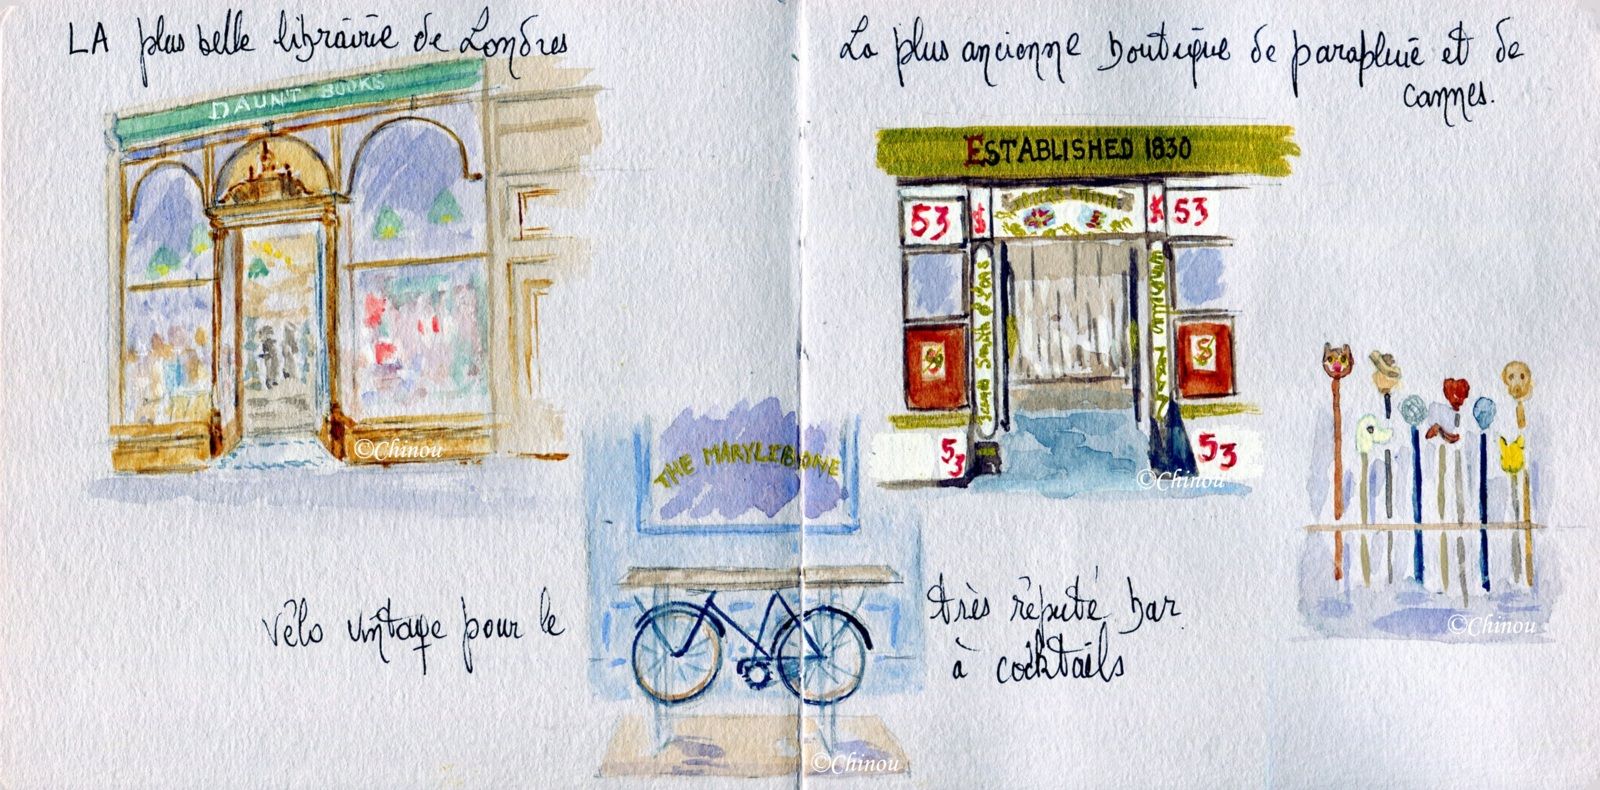 LA plus belle librairie de Londres
DAUNT BOOKS
©Chinou
La plus ancienne boutique de parapluie et de
cannes.
ESTABLISHED 1830
53
53
53
53
©Chinou
THE MARYLEBONE
vélo vintage pour le
très réputé bar
à cocktails
©Chinou
©Chinou